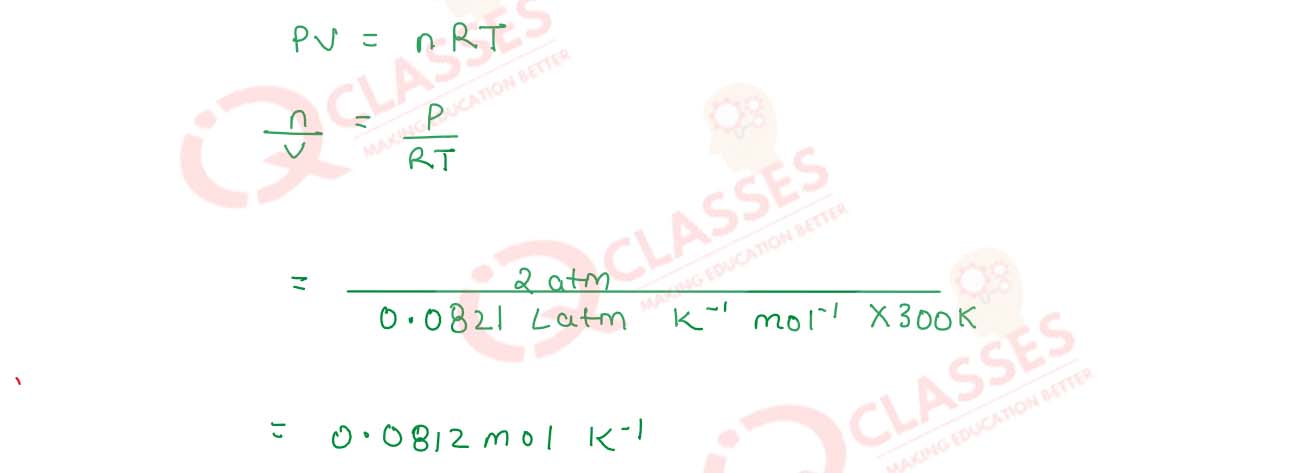 PV = nRT
n/V = P/RT
= 2 atm / 0.0821 Latm K⁻¹ mol⁻¹ X300K
= 0.0812 mol K⁻¹
iQ CLASSES
MAKING EDUCATION BETTER
iQ CLASSES
MAKING EDUCATION BETTER
CLASSES
MAKING EDUCATION BETTER